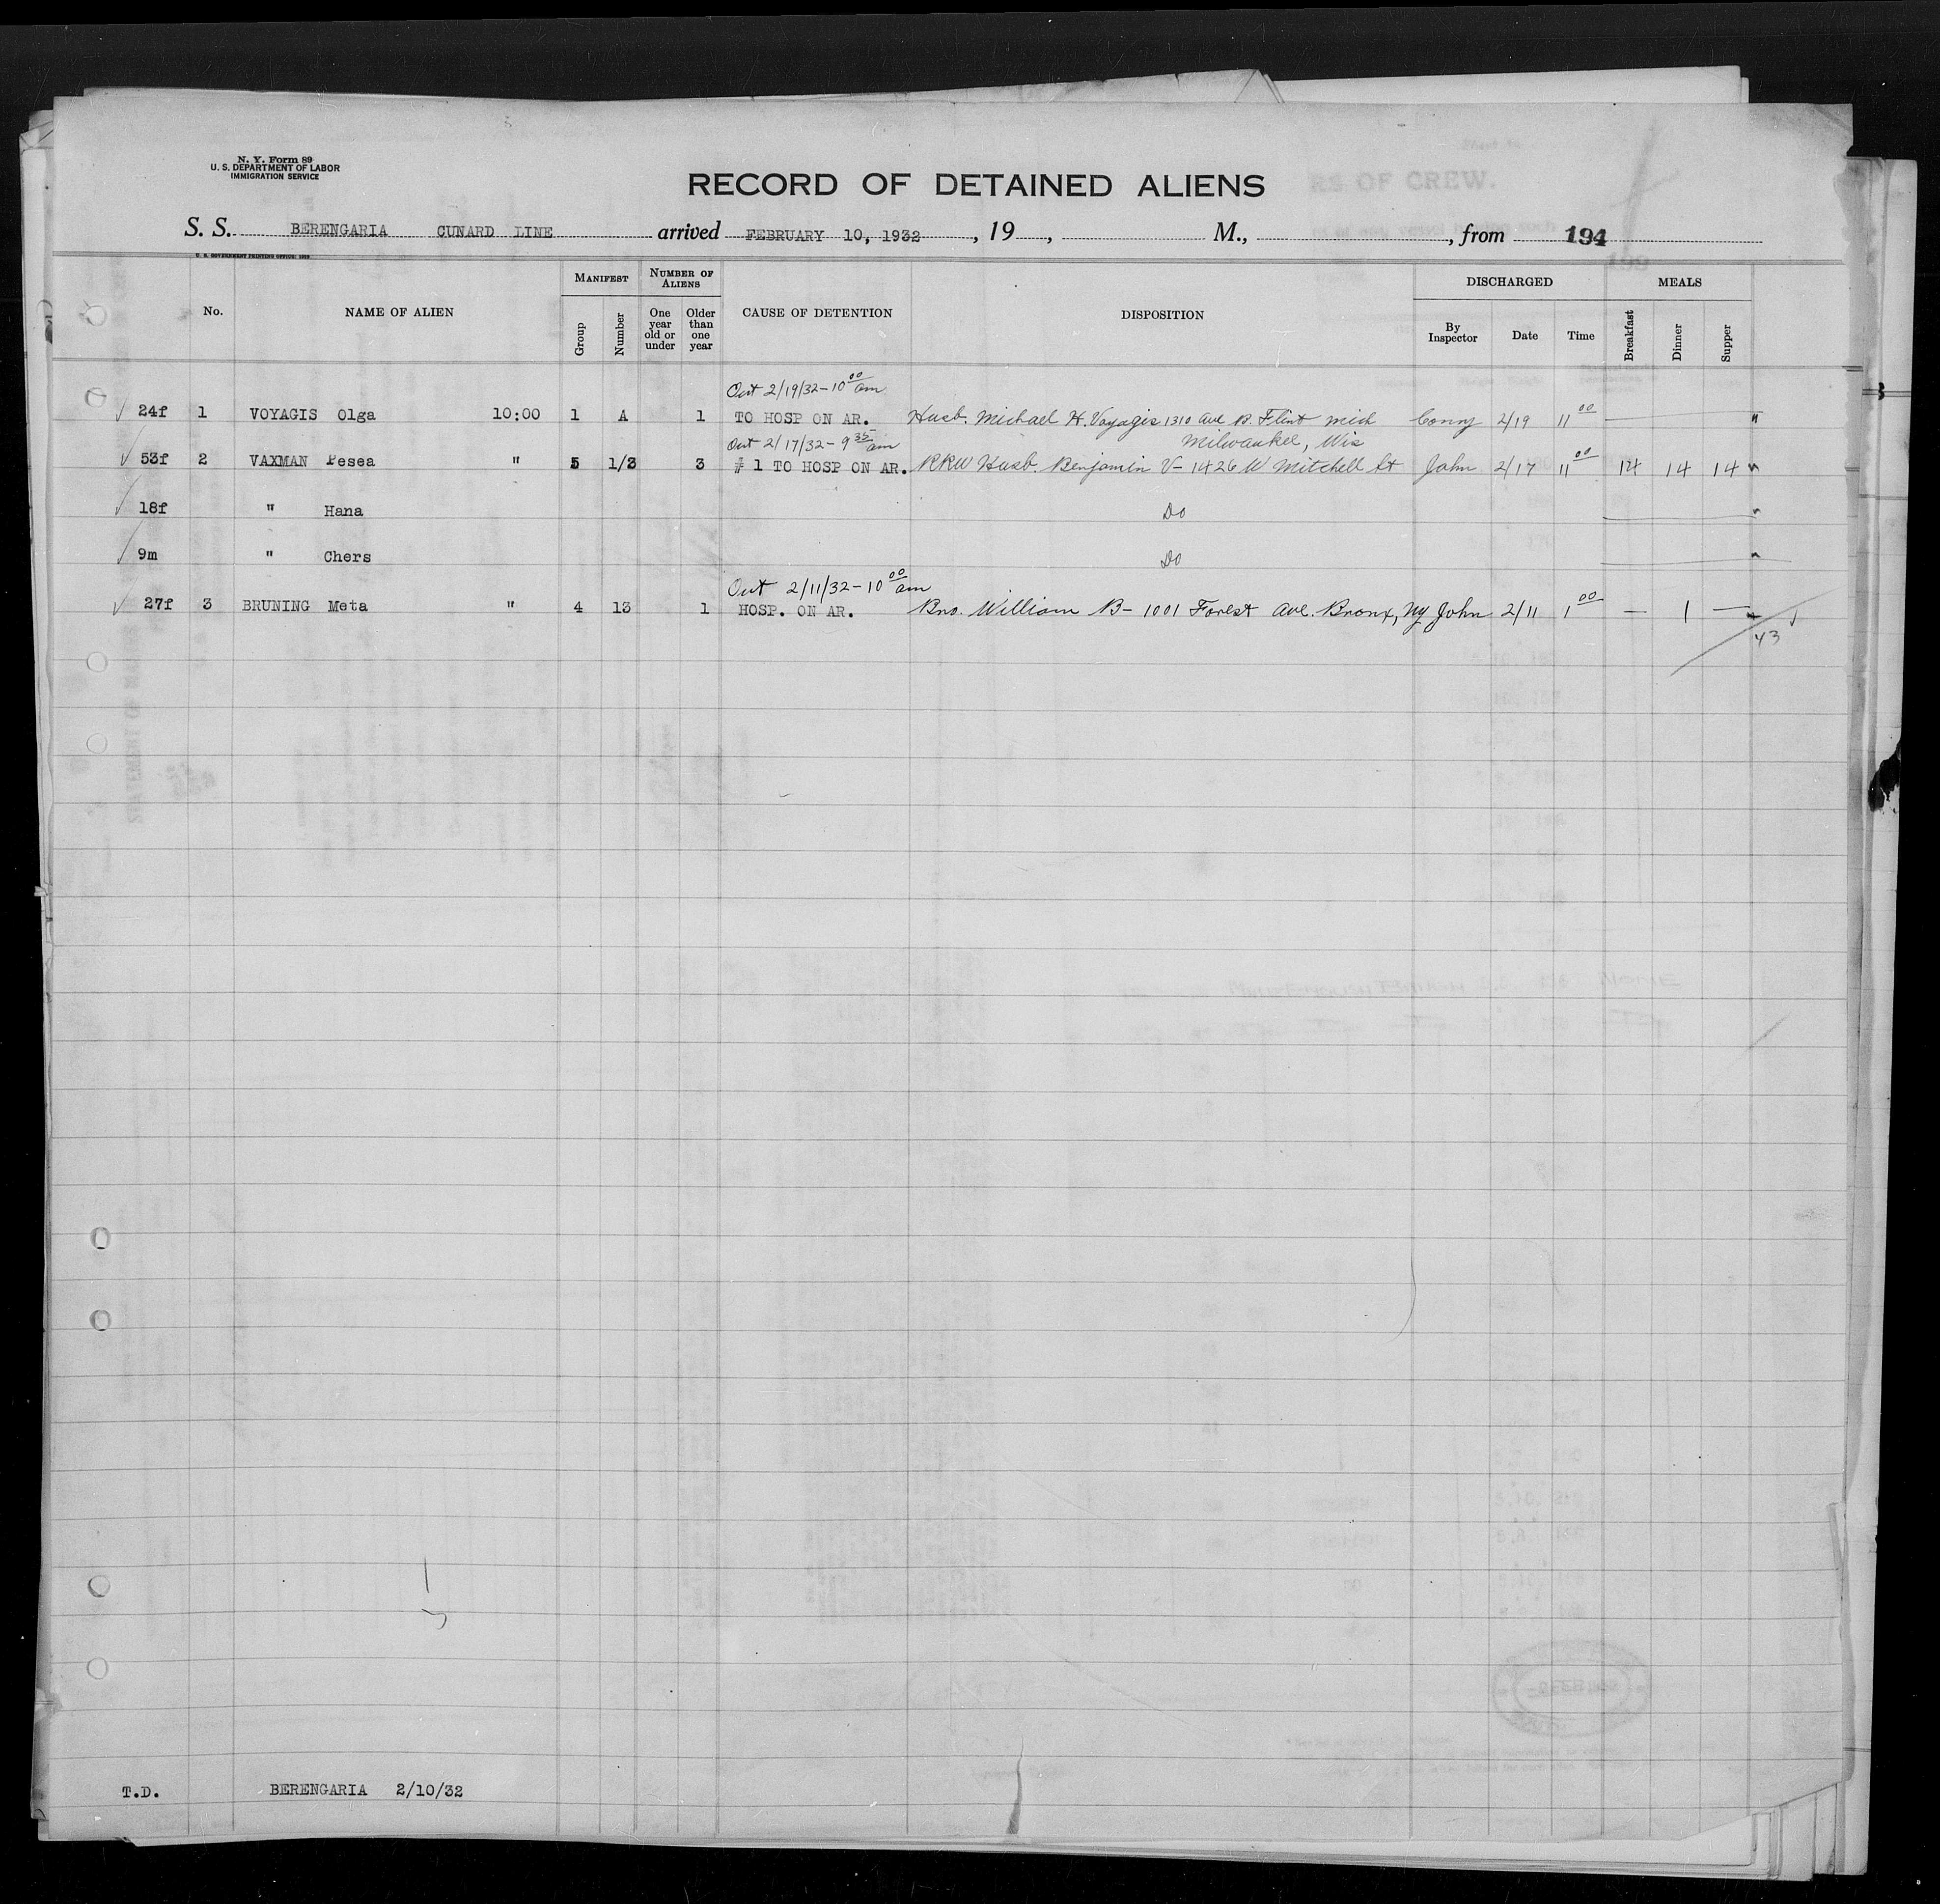 N. Y. Form 89
U. S. DEPARTMENT OF LABOR
IMMIGRATION SERVICE
RECORD OF DETAINED ALIENS
S. S. BERENGARIA CUNARD LINE arrived FEBRUARY 10, 1932, 19 , M., , from 194
U. S. GOVERNMENT PRINTING OFFICE:
No. NAME OF ALIEN MANIFEST Group Number NUMBER OF ALIENS One year old or under Older than one year CAUSE OF DETENTION DISPOSITION DISCHARGED By Inspector Date Time MEALS Breakfast Dinner Supper
Out 2/19/32 - 10 00 am
24f 1 VOYAGIS Olga 10:00 1 A 1 TO HOSP ON AR. Husb. Michael H. Voyagis 1310 Ave B. Flint Mich Conny 2/19 11 00 "
Out 2/17/32 - 9 35 am Milwaukee, Wis
53f 2 VAXMAN Pesea " 5 1/3 3 # 1 TO HOSP ON AR. RRW Husb. Benjamin V - 1426 W Mitchell St John 2/17 11 00 14 14 14 "
18f " Hana Do "
9m " Chers Do "
Out 2/11/32 - 10 00 am
27f 3 BRUNING Meta " 4 13 1 HOSP. ON AR. Bro. William B - 1001 Forest Ave. Bronx, NY John 2/11 1 00 — 1 —
43
T.D. BERENGARIA 2/10/32